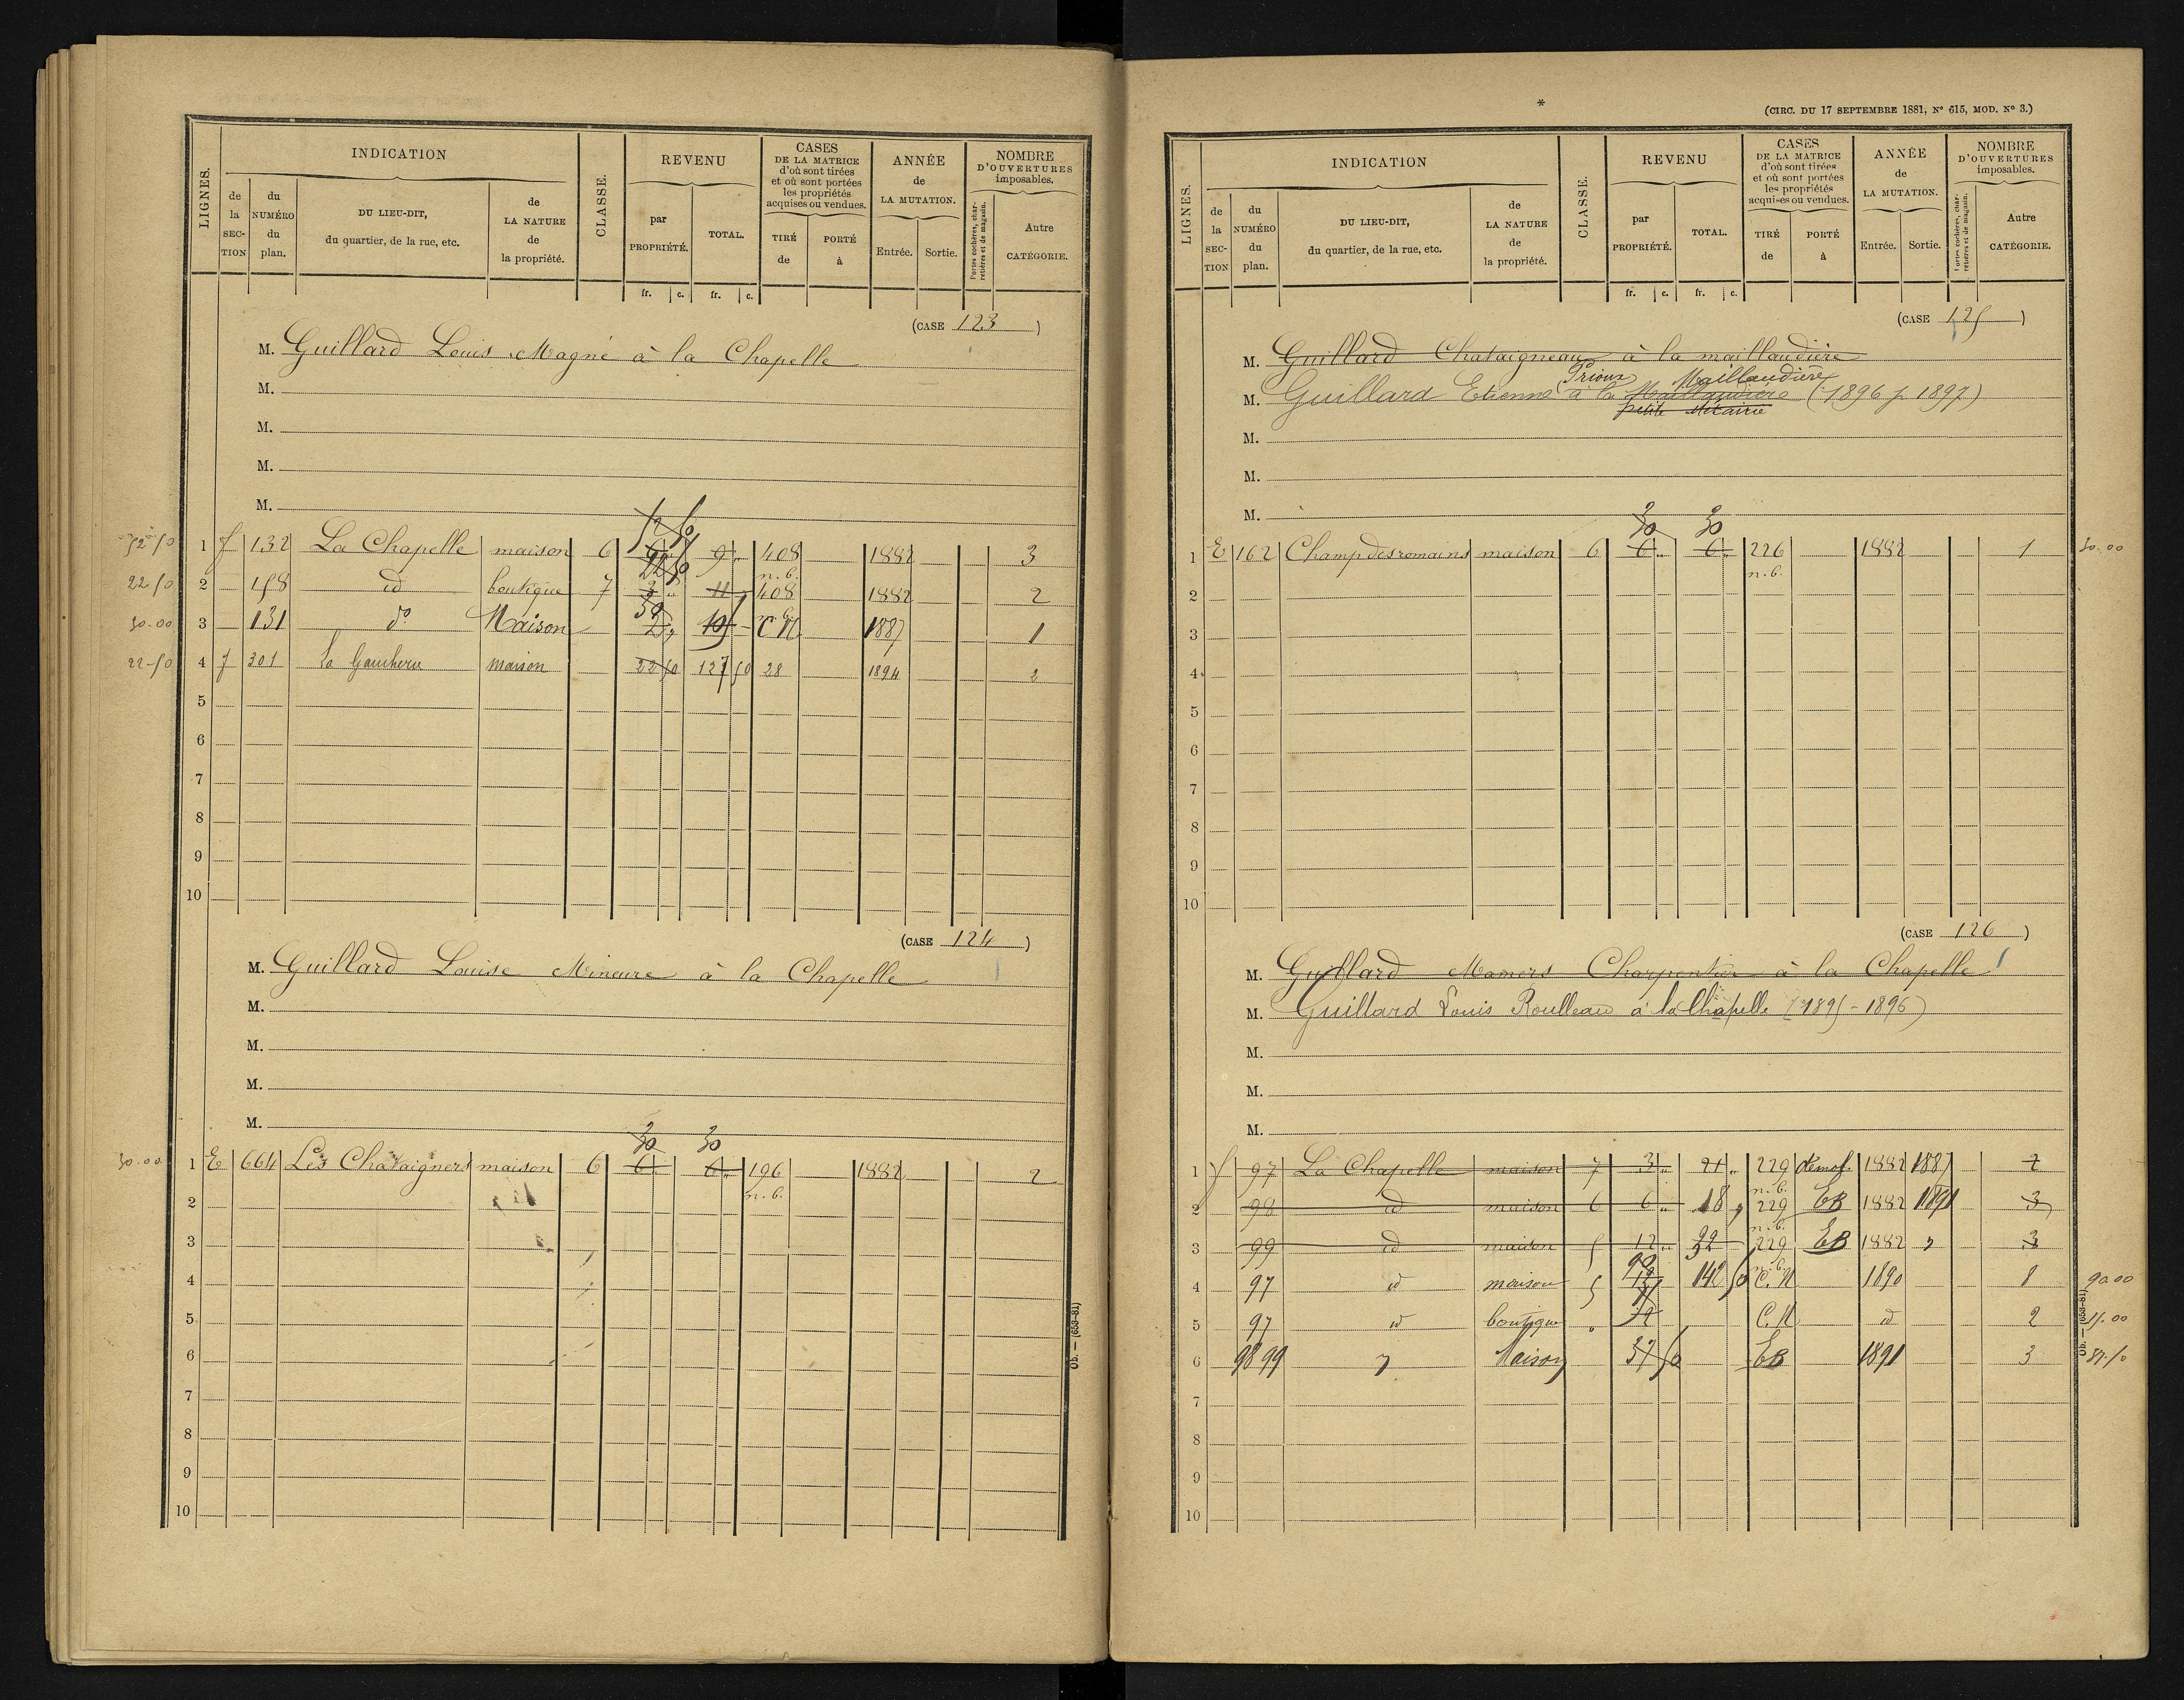 LIGNES.
INDICATION
de la SECTION
du NUMÉRO du plan.
DU LIEU-DIT, du quartier, de la rue, etc.
de LA NATURE de la propriété.
CLASSE.
REVENU
par PROPRIÉTÉ.
TOTAL.
fr. c. fr. c.
CASES DE LA MATRICE d'où sont tirées et où sont portées les propriétés acquises ou vendues.
TIRÉ de
PORTÉ à
ANNÉE de LA MUTATION.
Entrée. Sortie.
NOMBRE D'OUVERTURES imposables.
Portes cochères, charretières et de magasin.
Autre CATÉGORIE.
(CASE 123)
M. Guillard Louis Magné à la Chapelle
M.
M.
M.
M.
52-50 1 f 132 La Chapelle maison 6 9 408 1882 3
n.b.
22.50 2 158 id boutique 7 3 11 408 1882 2
30.00 3 131 do Maison C N 1887 1
22-50 4 f 301 maison 22 50 127 50 28 1894 2
5
6
7
8
9
10
(CASE 124)
M. Guillard Louise Mineure à la Chapelle
M.
M.
M.
M.
30 30
30.00 1 E 664 Les Chataigners maison 6 6 6 196 1882 2
2 n.b.
3
4
5
6
7
8
9
10
Ob. — (653-81)
*
(CIRC. DU 17 SEPTEMBRE 1881, No 615, MOD. No 3.)
LIGNES.
INDICATION
de la SECTION
du NUMÉRO du plan.
DU LIEU-DIT, du quartier, de la rue, etc.
de LA NATURE de la propriété.
CLASSE.
REVENU
par PROPRIÉTÉ.
TOTAL.
fr. c. fr. c.
CASES DE LA MATRICE d'où sont tirées et où sont portées les propriétés acquises ou vendues.
TIRÉ de
PORTÉ à
ANNÉE de LA MUTATION.
Entrée. Sortie.
NOMBRE D'OUVERTURES imposables.
Portes cochères, charretières et de magasin.
Autre CATÉGORIE.
(CASE 125)
M. Guillard Chataigneau à la maillaudière
Prioux Maillaudière
M. Guillard Etienne à la Maillaudière (1896 p 1897)
petite Métairie
M.
M.
M.
30 30
1 E 162 Champ des romains maison 6 6 6 226 1882 1 30.00
n.b.
2
3
4
5
6
7
8
9
10
(CASE 126)
M. Guillard Mamers Charpentier à la Chapelle
M. Guillard Louis Roulleau à la Chapelle (1895-1896)
M.
M.
M.
1 f 97 La Chapelle maison 7 3 21 229 démol. 1882 1887
n.b.
2 98 id maison 6 6 18 229 EB 1882 1891 3
n.b.
3 99 id maison 5 12 229 EB 1882 3
n.b.
4 97 id maison 5 142 50 C.N 1890 8 90.00
5 97 id boutique C.N id 2 15.00
6 98 99 Maison 37 50 EB 1891 3 37.50
7
8
9
10
Ob. — (653-81)